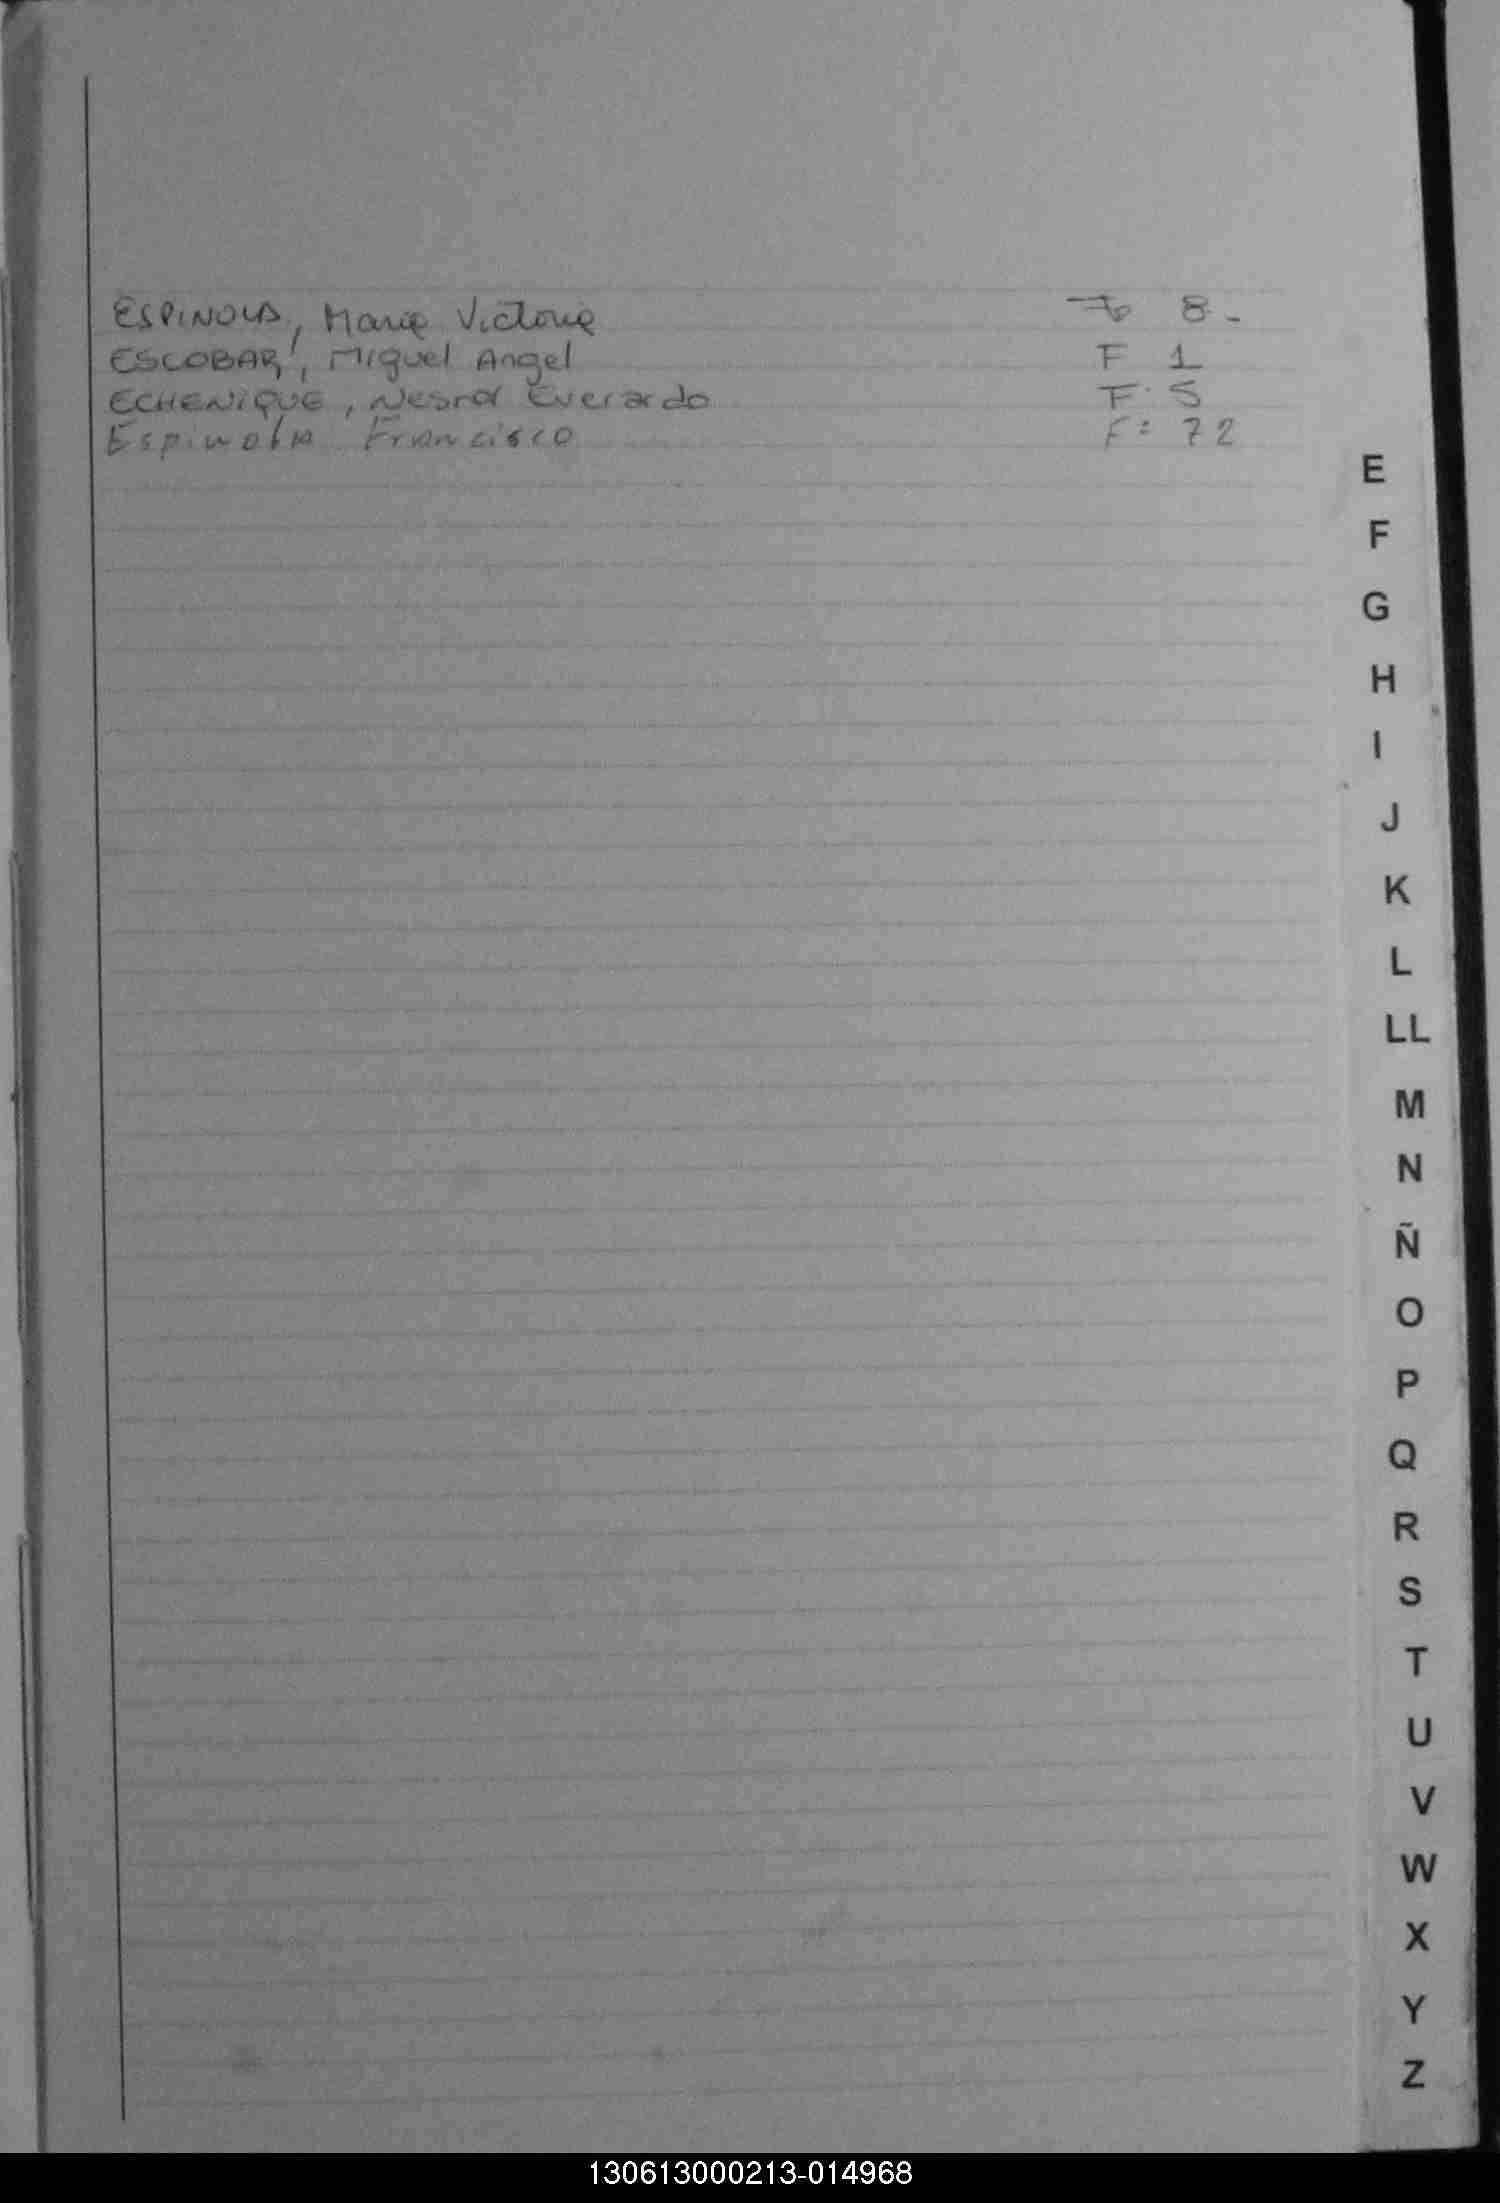 ESPINOLA, Maria Victoria Fo 8-
ESCOBAR, Miguel Angel F 1
ECHENIQUE, Nestor Everardo F. 5
Espinola Francisco F= 72
E
F
G
H
I
J
K
L
LL
M
N
Ñ
O
P
Q
R
S
T
U
V
W
X
Y
Z
130613000213-014968